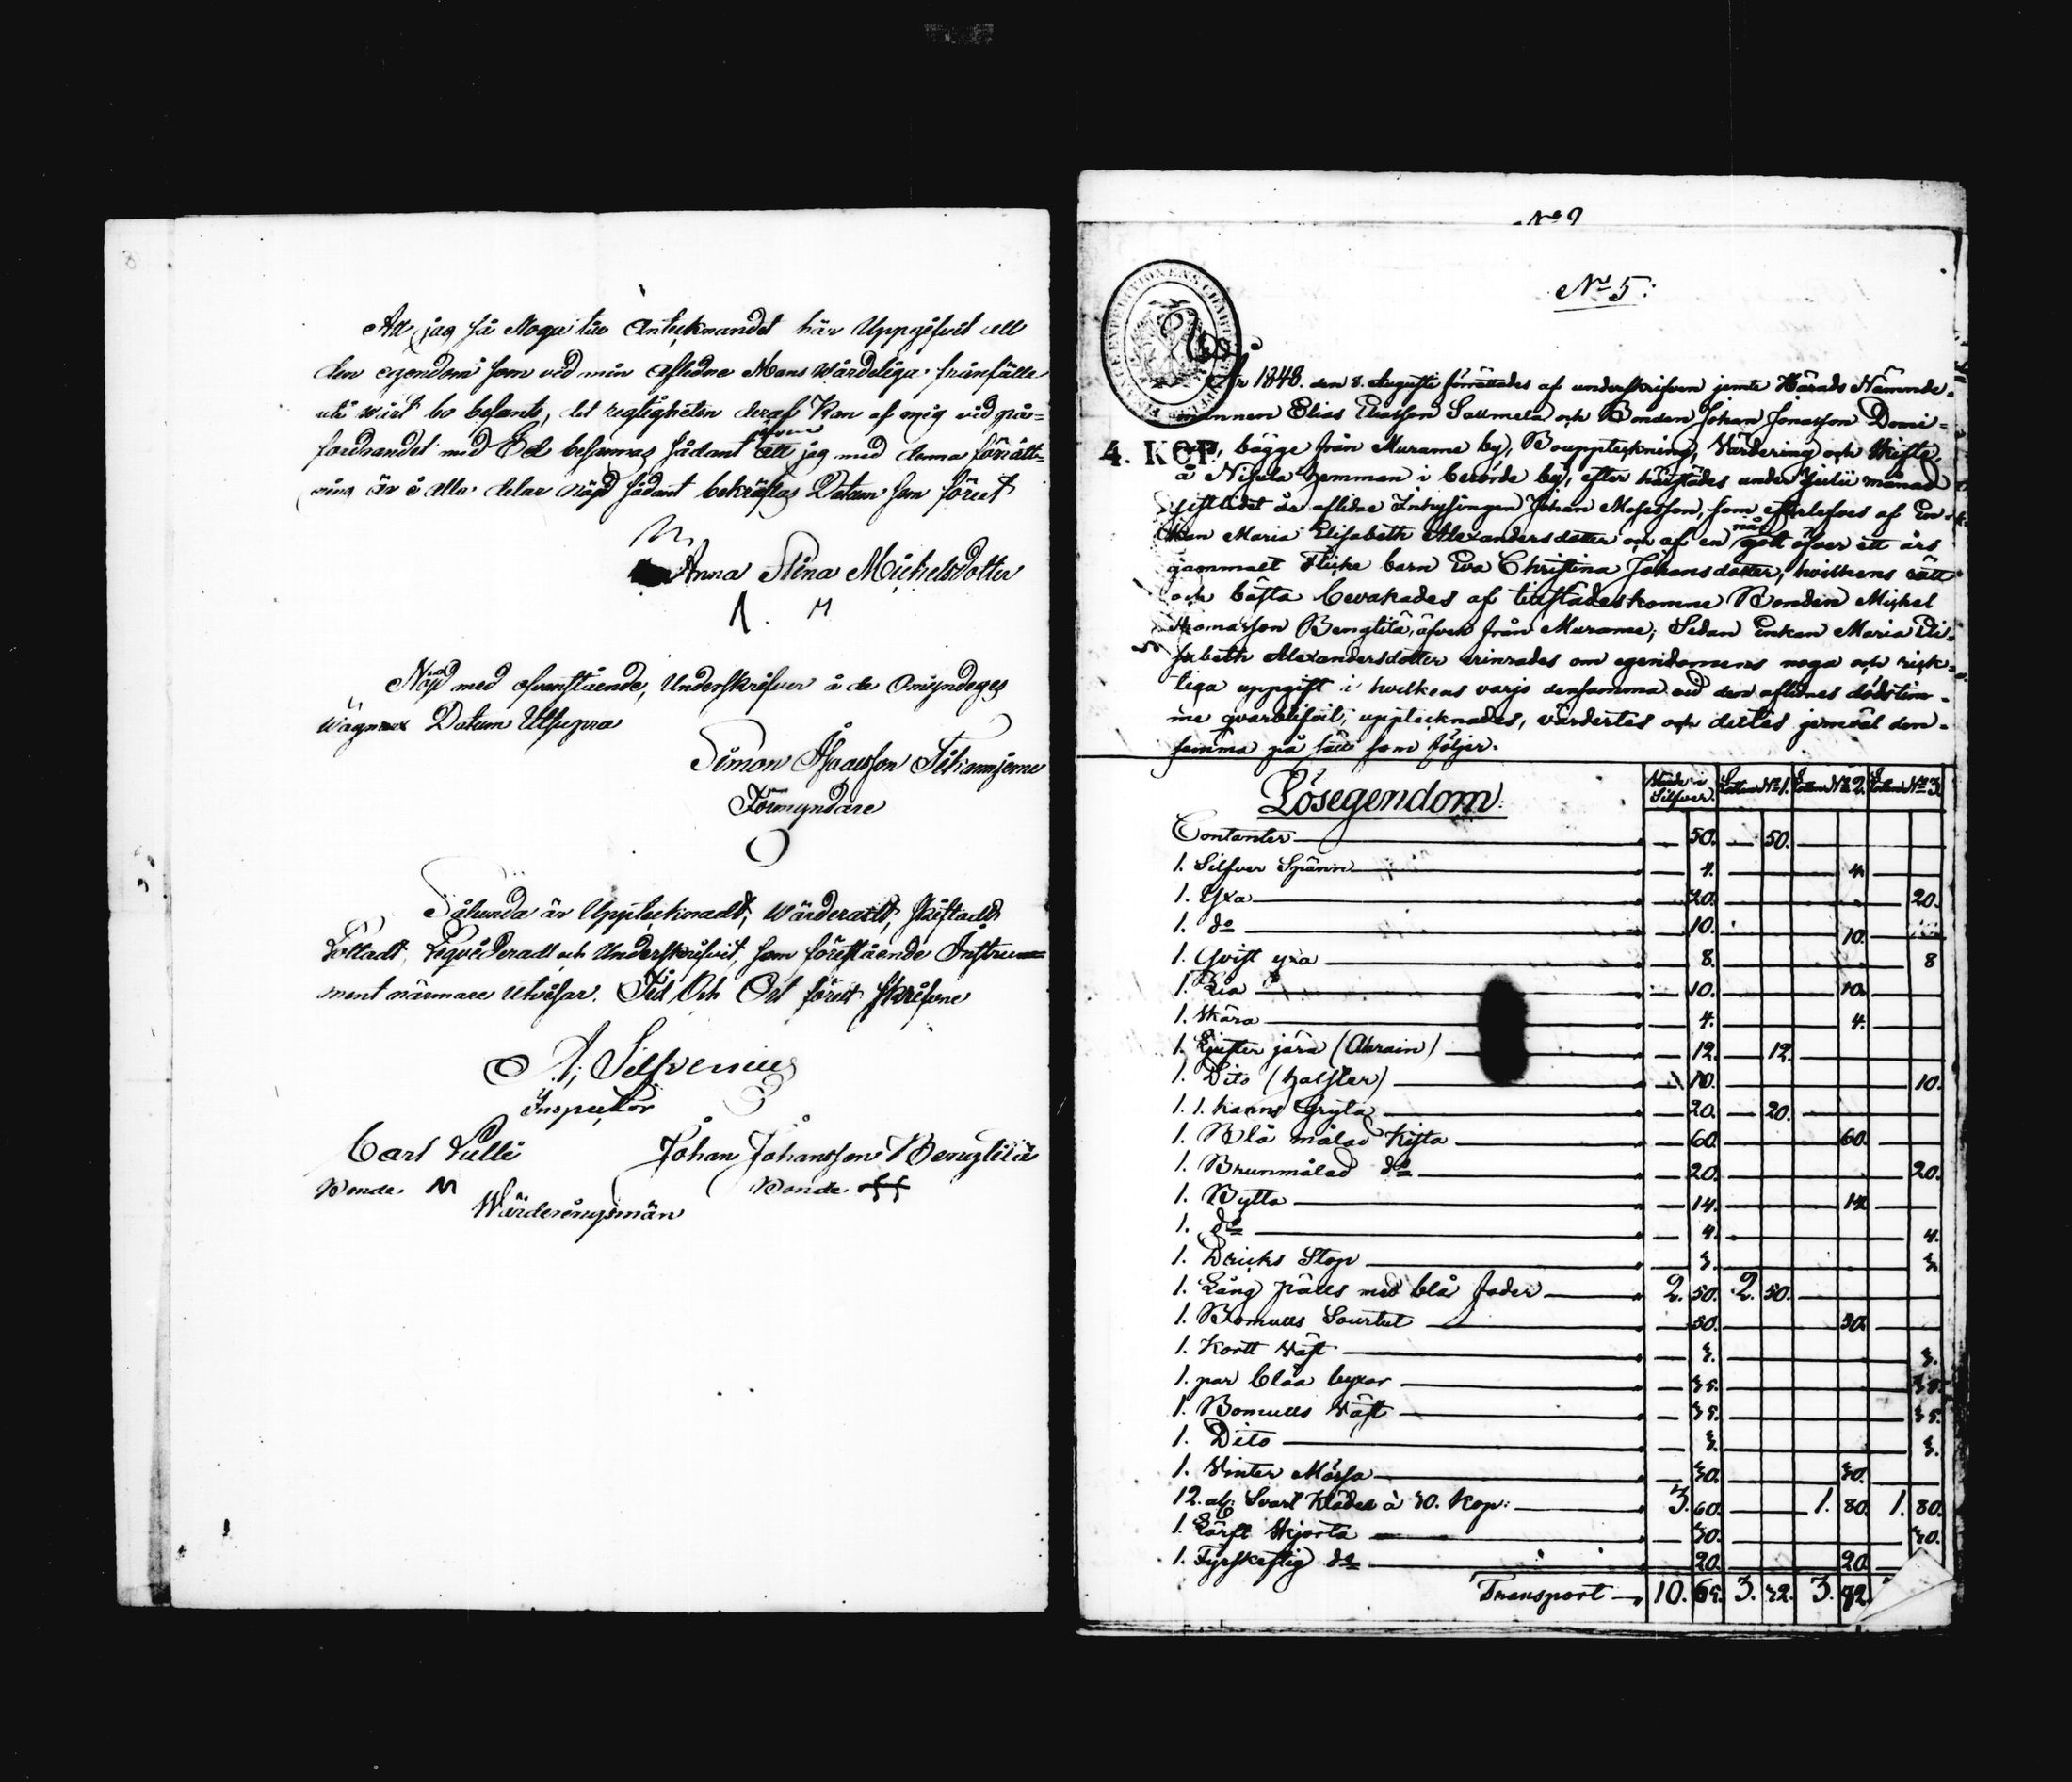 Att jag så Noga till Antecknandet här Uppgifvit all
den egendom som vid min Aflidne Mans Wårdeliga frånfälle
uti wårt bo befants, det rigtigheten deraf Kan af mig vid på-
fordrandet med Ed besannas sådant äfven att jag med denna förrätt-
ning är i alla delar nöjd sådant bekräftas Datum som förut
Anna Stina Michelsdotter
Nöjd med ofvanstående, Underskrifver å de Omyndiges
Wägnar Datum Utsupra
Simon Isaacsson
Förmyndare
Sålunda är Upptecknadt, Wärderadt, skiftadt
Lottadt, Liqvideradt och Underskrifvit, som förestående Instru-
ment närmare Utvisar. Tid Och Ort förut skrifvne
A; Silfvenius
Inspector
Carl Pulli Johan Johansson Bengtilä
Bonde Bonde
Wärderingsmän
No 2
No 5:
År 1848. den 8. Augusti förrättades af underskrifven jemte Härads Nämnde-
mannen Elias Eliasson Sallmela och Bonden Johan Jonasson Domi-
4. KOP. bägge från Murame by, Bouppteckning, Värdering och Skifte,
å Nifula hemman i berörde by, efter härstädes under Julii månad
sistledet år aflidne Inhysingen Johan Mosesson, som efterlefves af En-
kan Maria Elisabeth Alexandersdotter och af en något öfver ett års
gammalt Flicke barn Eva Christina Johansdotter, hvilkens rätt
och bästa bevakades af tillstädeskomne Bonden Michel
Thomasson Bengtilä, äfven från Murame; Sedan Enkan Maria Eli-
sabeth Alexandersdotter erinrades om egendomens noga och rick-
tiga uppgift i hvilkens varjo densamma vid den aflidnes dödstim-
me qvarblifvit, upptecknades, värdertes och deltes jemväl den-
samma på sätt som följer.
Lösegendom: Värde i Silfver. Lotten No 1. Lotten No 2. Lotten No 3.
Contanter 50. 50.
1. Silfver Spänn 4. 4.
1. Yxa 20. 20.
1. do 10. 10.
1. Qvist yxa 8. 8
1. Lia 10. 10.
1. Skära 4. 4.
1. Ljuster järn (Ahrain) 12. 12.
1. Dito (halster) 10. 10.
1. 1. kanns Gryta 20. 20.
1. Blå målad Kista 60. 60.
1. Brunmålad do 20. 20.
1. Bytta 14. 14
1. do 4. 4.
1. Dricks Stop 3. 3.
1. Lång pälls med blå foder 2. 50. 2. 50.
1. Bomulls Sourtut 50. 50.
1. Kortt väst 3. 3.
1. par blåa byxor 35. 35.
1. Bomulls Väst 35. 35.
1. Dito 3. 3.
1. Vinter Mössa 30. 30.
12. al: Svart Kläde à 30. Kop: 3. 60. 1. 80. 1. 80.
1. Lärft Skjorta 30. 30.
1. Fyrskeftig do 20. 20
Transport 10. 65. 3. 32. 3. 72.